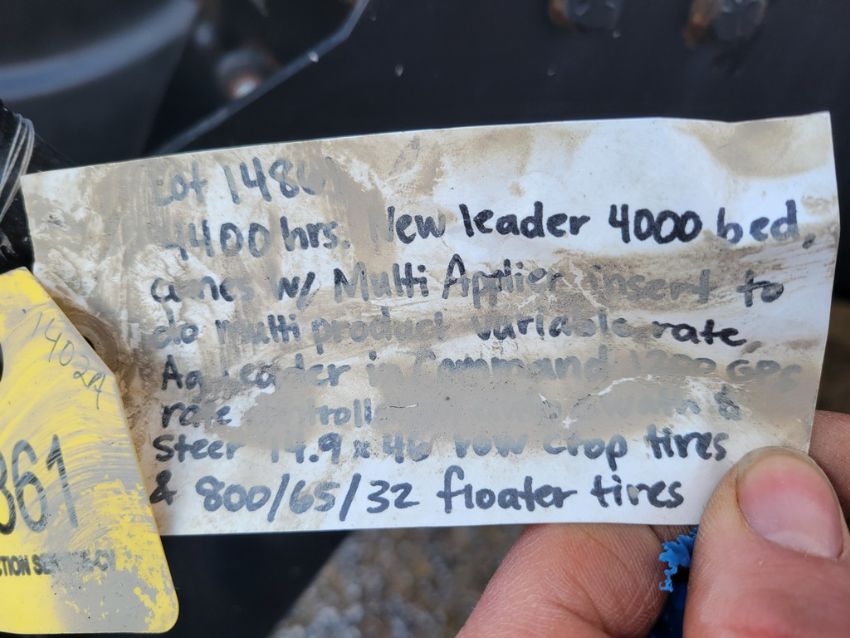 Lot
4400 hrs. New leader 4000 bed,
comes w/ Multi Applier insert to
do multi product variable rate,
Ag Leader in Command 1200 GPS
rate
Steer 14.9 x 46 row crop tires
& 800/65/32 floater tires
1402A
361